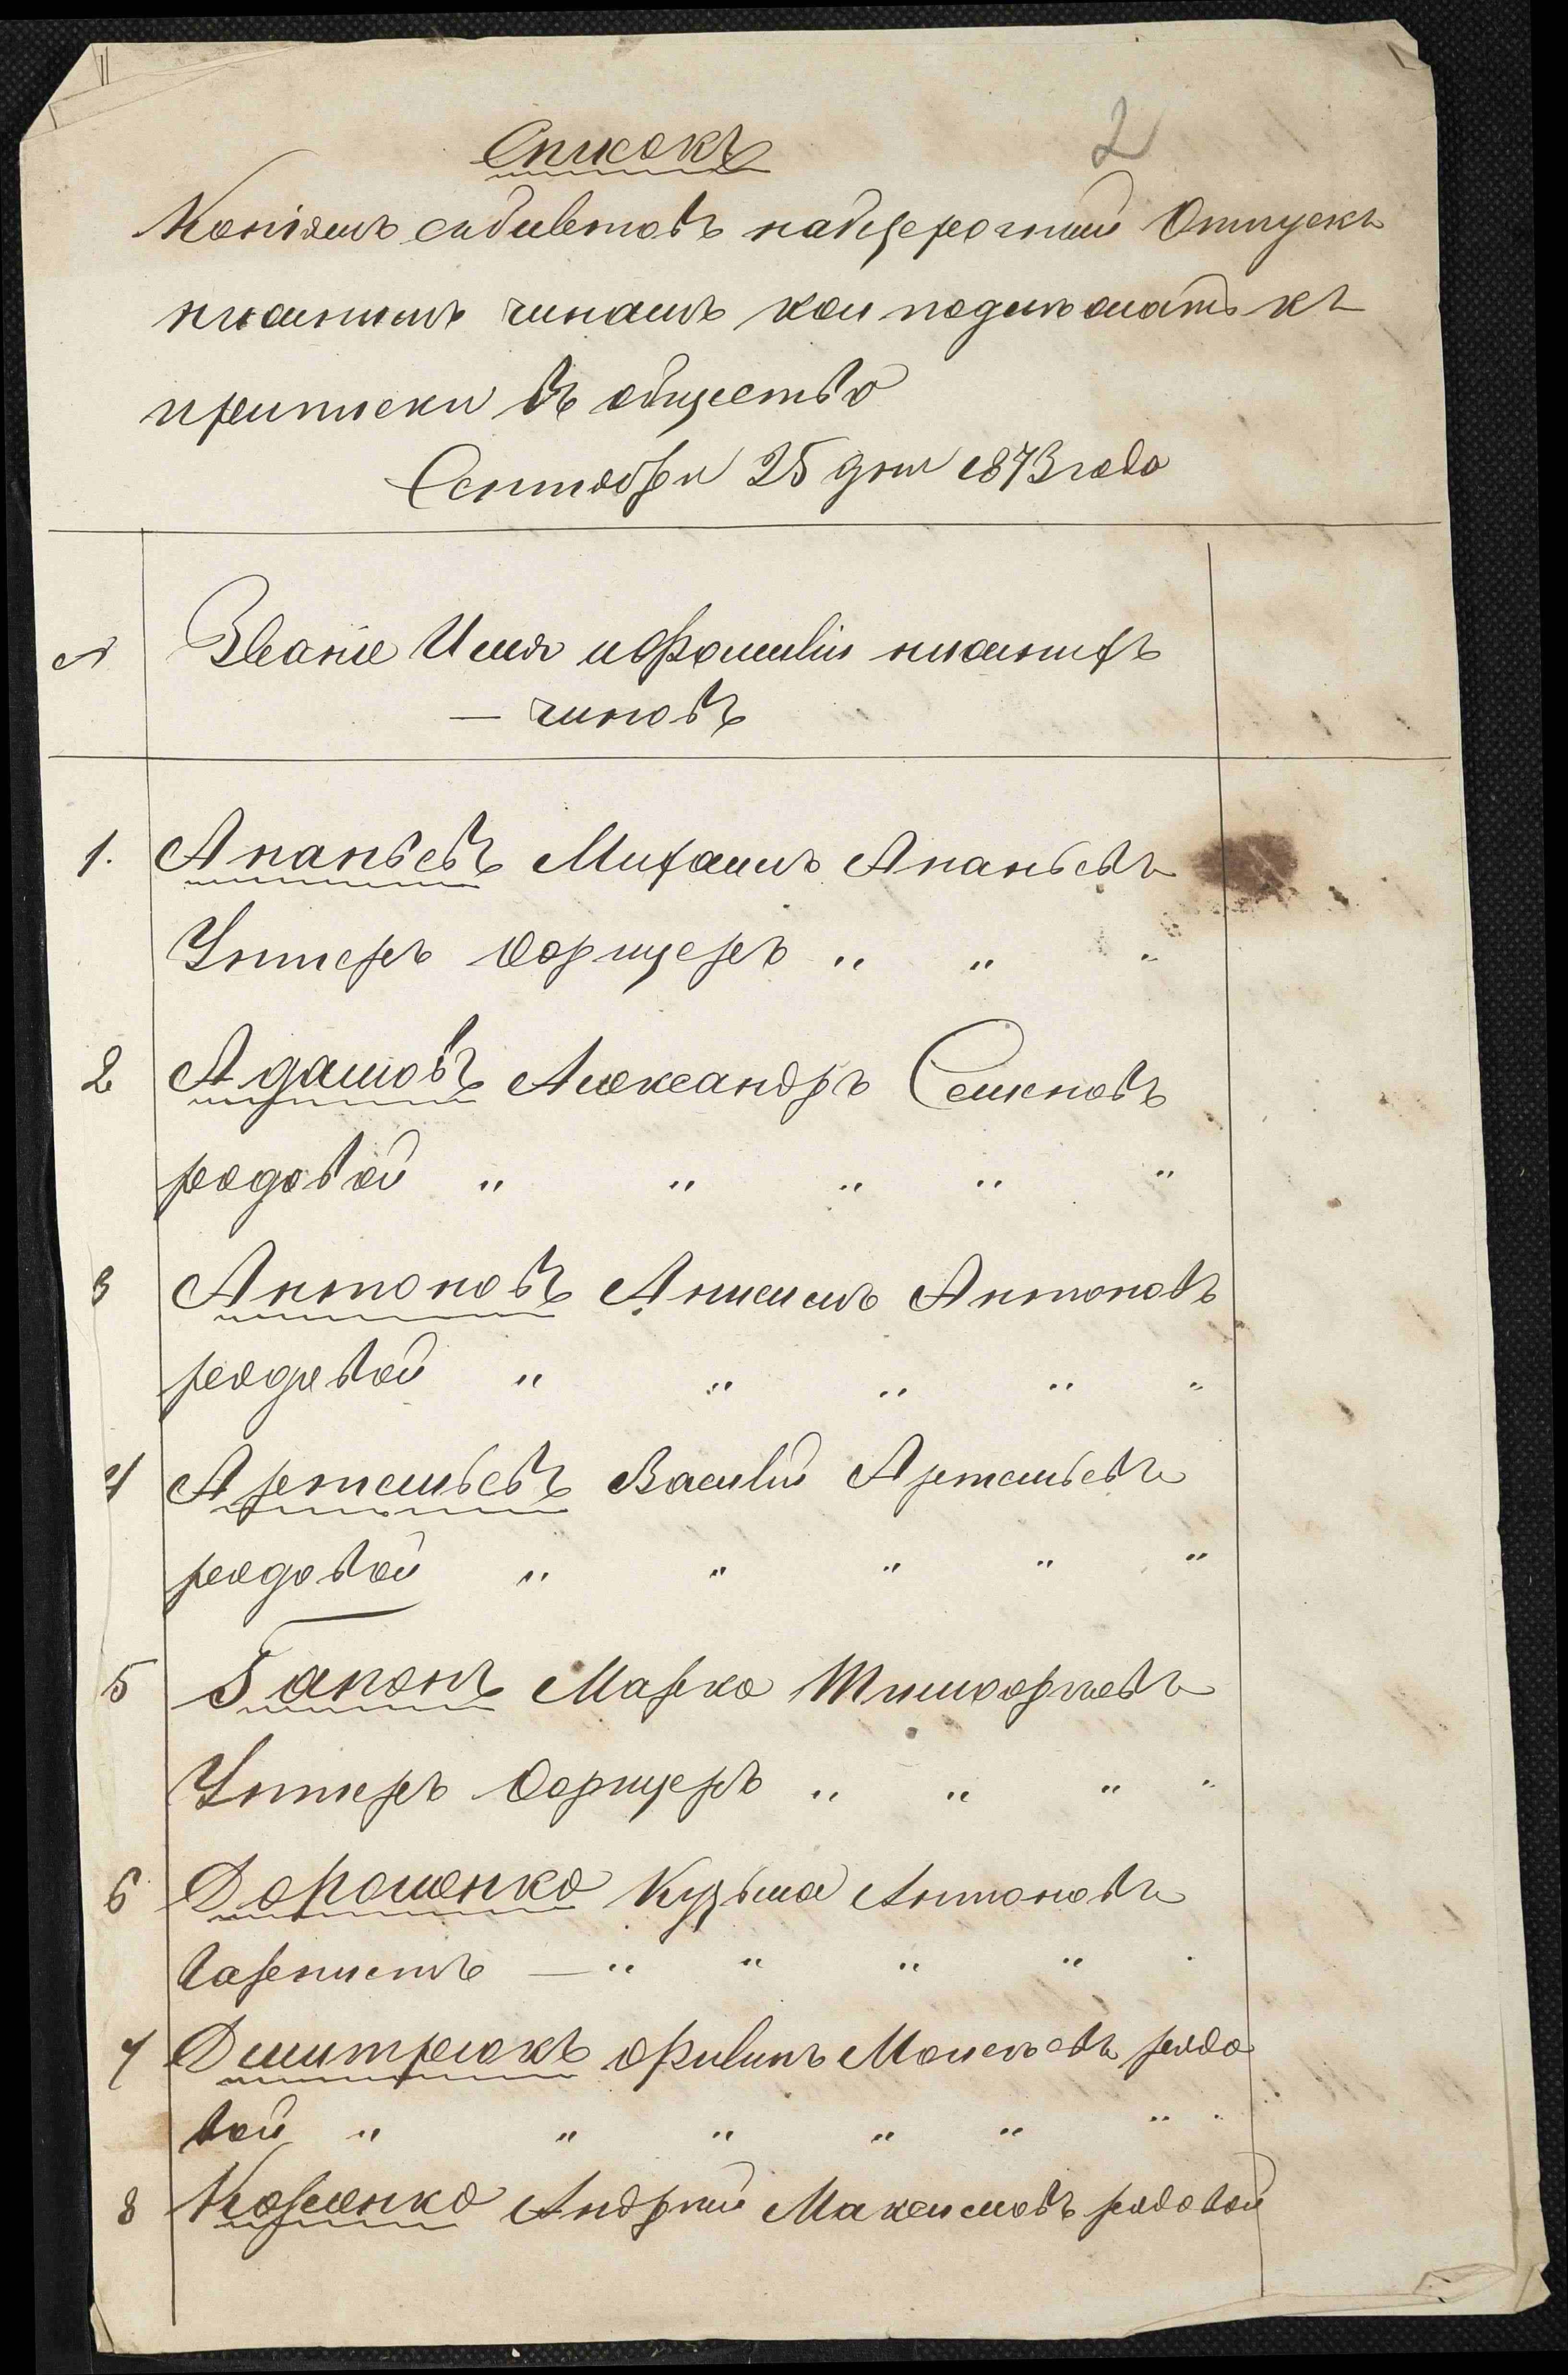 Списокъ
2
Копіямъ съ билетовъ на бсрочный Отпускъ
нижнимъ чинамъ кои подлежатъ къ
приписки въ общество
Сентября 25 дня 1873 года
№ Званіе Имя и Фамилія нижнихъ
— чиновъ
1. Ананьевъ Михаилъ Ананьевъ
Унтеръ Офицеръ " " "
2 Адамовъ Александръ Семеновъ
рядовой " " " " "
3 Антоновъ Анисимъ Антоновъ
рядовой " " " " "
4 Артемьевъ Василій Артемьевъ
рядовой " " " " "
5 Гапонъ Марко Тимофеевъ
Унтеръ Офицеръ " " " "
6 Дорошенко Кузьма Антоновъ
— " " " "
7 Дмитрюкъ Филипъ Моисеевъ рядо
вой " " " " " "
8 Андрей Максимовъ рядовой